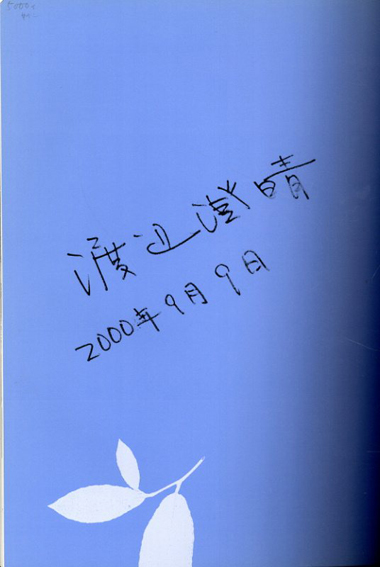 渡辺澄晴
2000年9月9日